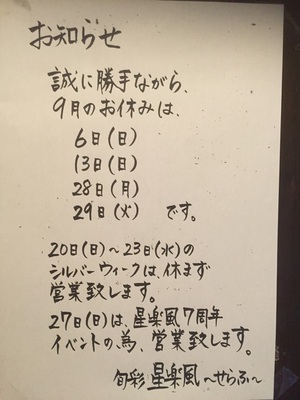 お知らせ
誠に勝手ながら、
9月のお休みは、
6日(日)
13日(日)
28日(月)
29日(火) です。
20日(日)~23日(水)の
シルバーウィークは、休まず
営業致します。
27日(日)は、星楽風7周年
イベントの為、営業致します。
旬彩 星楽風 ~せらふ~